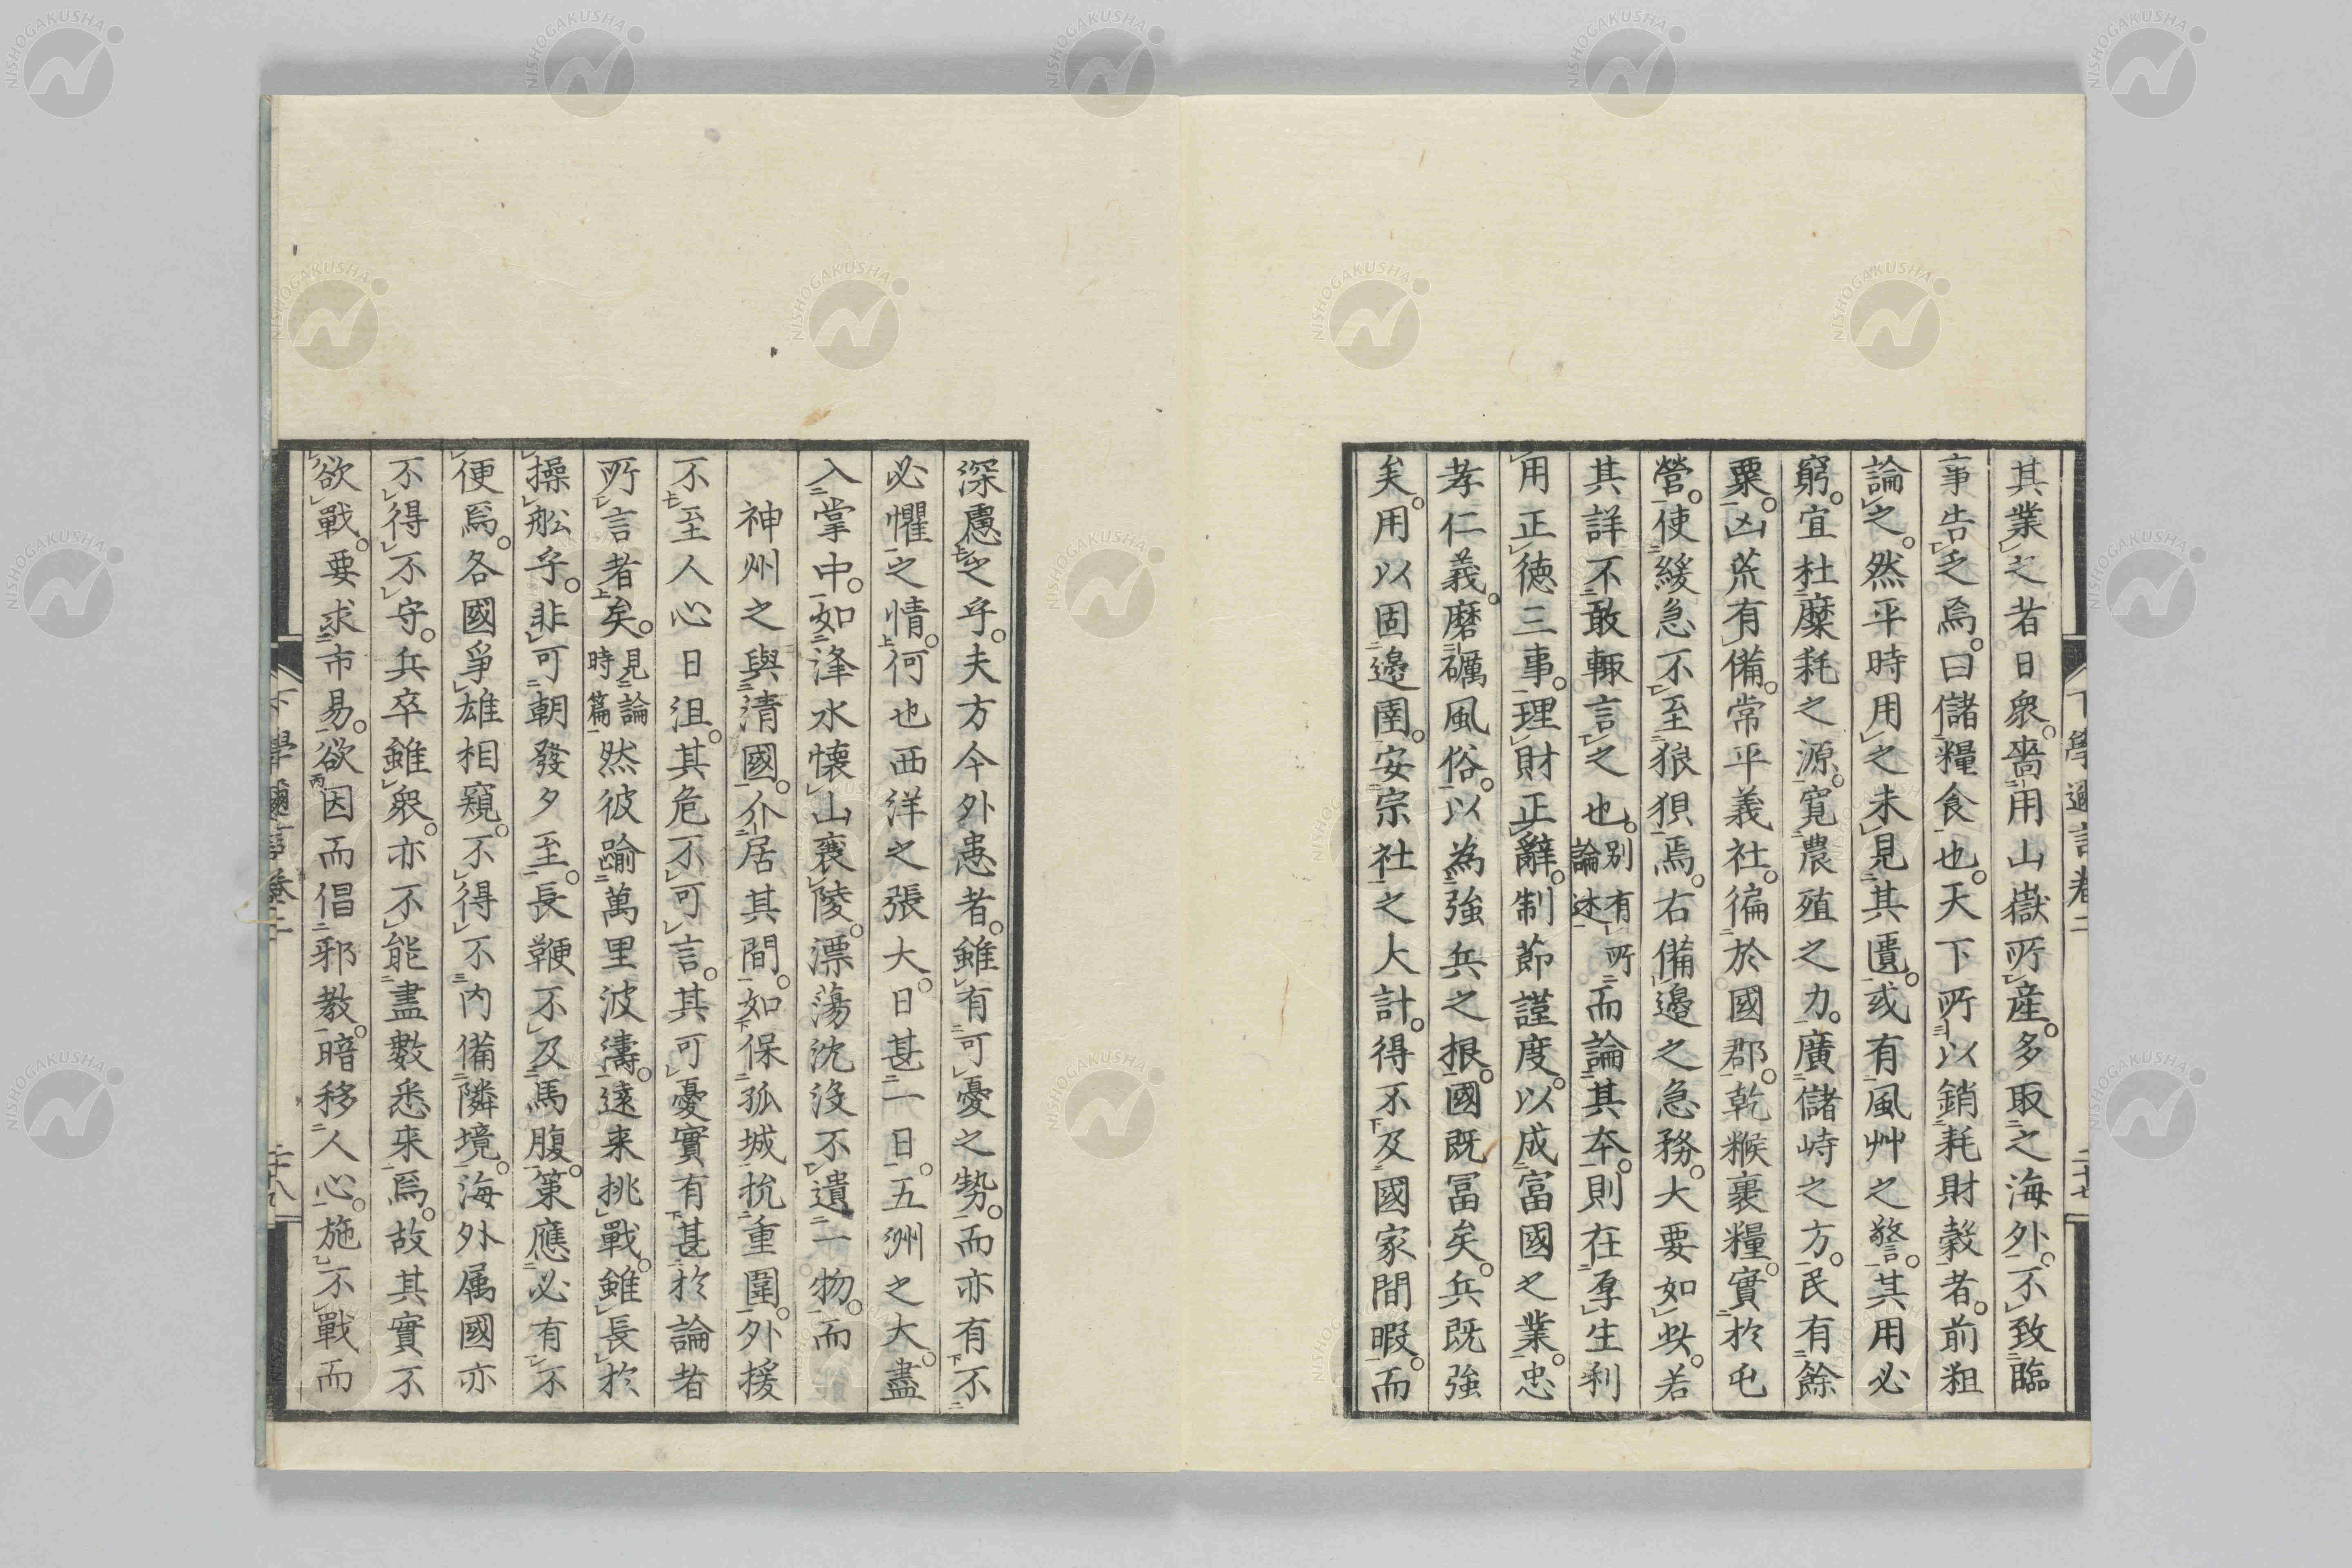 下學邇言卷二
二十七
其業之者日衆。啬用山嶽所產。多取之海外。不致臨
事告乏焉。曰儲糧食也。天下所以銷耗財穀者。前粗
論之。然平時用之未見其匱。或有風艸之警。其用必
窮。宜杜糜耗之源。寬農殖之力。廣儲峙之方。民有餘
粟。凶荒有備。常平義社。徧於國郡。乾糇裹糧。實於屯
營。使緩急不至狼狽焉。右備邊之急務。大要如此。若
其詳不敢輙言之也。別有所論述而論其本。則在厚生利
用正德三事。理財正辭。制節謹度。以成富國之業。忠
孝仁義。磨礪風俗。以為強兵之根。國既冨矣。兵既強
矣。用以固邊圉。安宗社之大計。得不及國家間暇。而
深慮之乎。夫方今外患者。雖有可憂之勢。而亦有不
必懼之情。何也西洋之張大。日甚一日。五洲之大。盡
入掌中。如洚水懷山襄陵。漂蕩沈沒不遺一物。而
神州之與清國。介居其間。如保孤城抗重圍。外援
不至人心日沮。其危不可言。其可憂實有甚於論者
所言者矣。見論時篇然彼踰萬里波濤。遠来挑戰。雖長於
操舩乎。非可朝發夕至。長鞭不及馬腹。策應必有不
便焉。各國爭雄相窺。不得不內備隣境。海外属國亦
不得不守。兵卒雖衆。亦不能盡數悉来焉。故其實不
欲戰。要求市易。欲因而倡邪教。暗移人心。施不戰而
下學邇言卷二
二十八